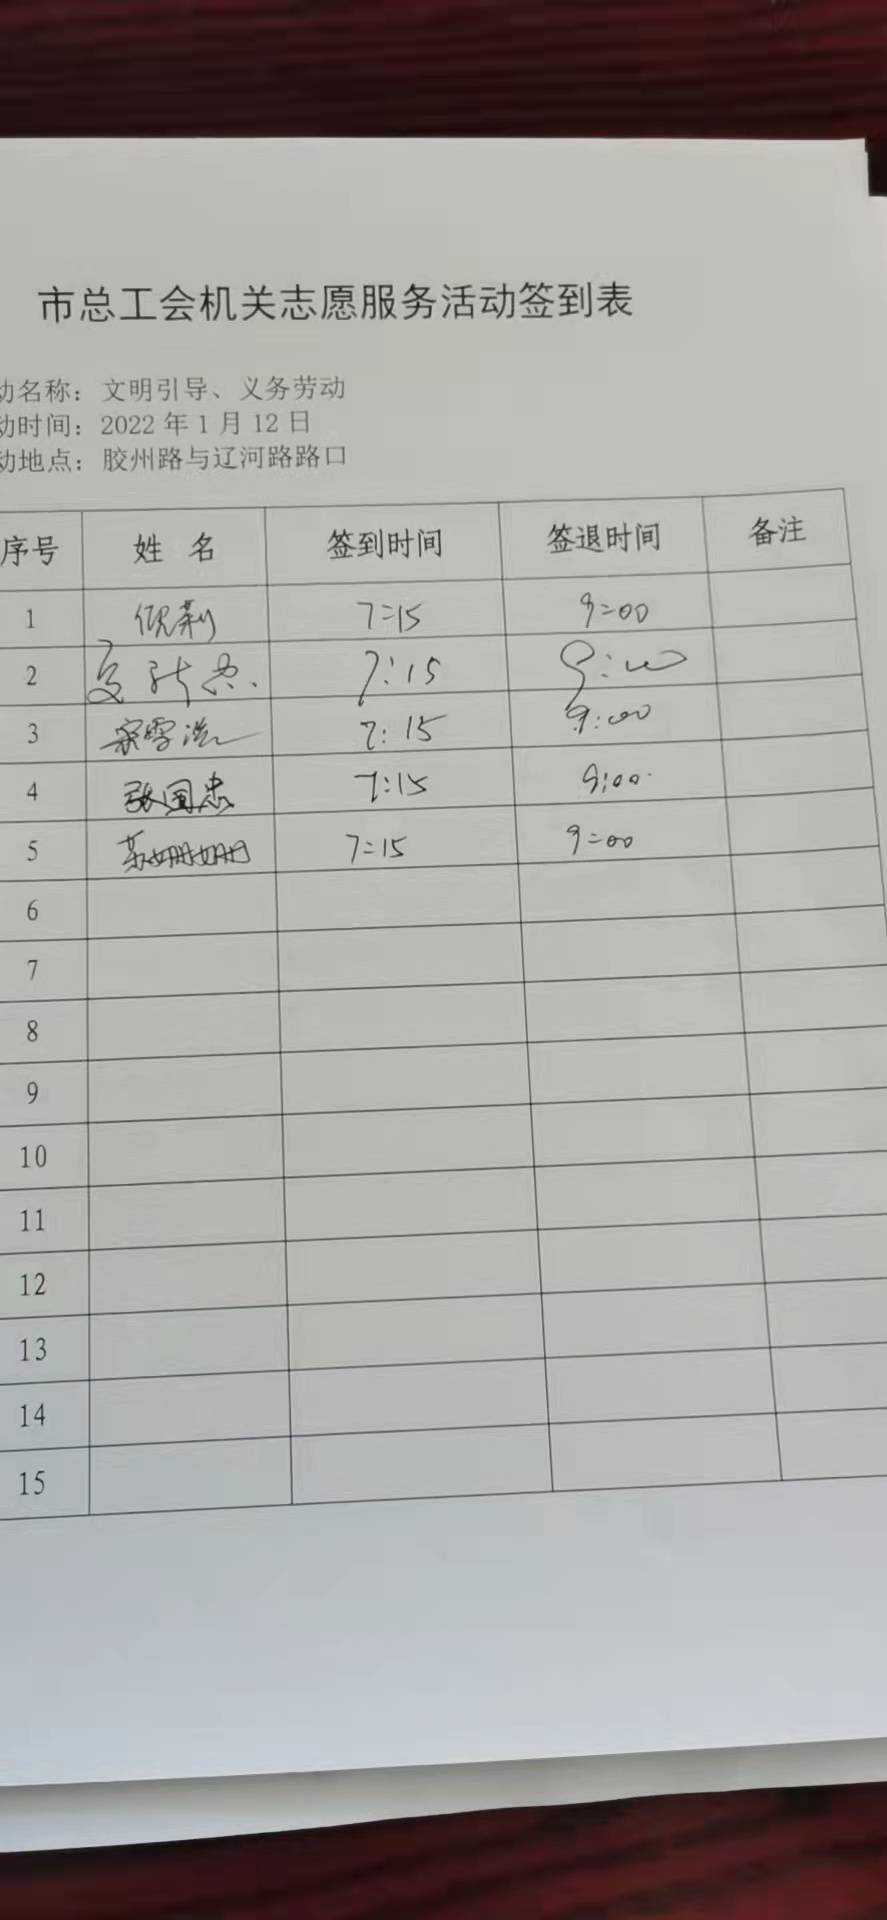 市总工会机关志愿服务活动签到表
动名称：文明引导、义务劳动
动时间：2022年1月12日
动地点：胶州路与辽河路路口
序号 姓名 签到时间 签退时间 备注
1 倪莉 7:15 9:00
2 7:15 9:00
3 宋雪 7:15 9:00
4 张国忠 7:15 9:00
5 苏姗姗 7:15 9:00
6
7
8
9
10
11
12
13
14
15